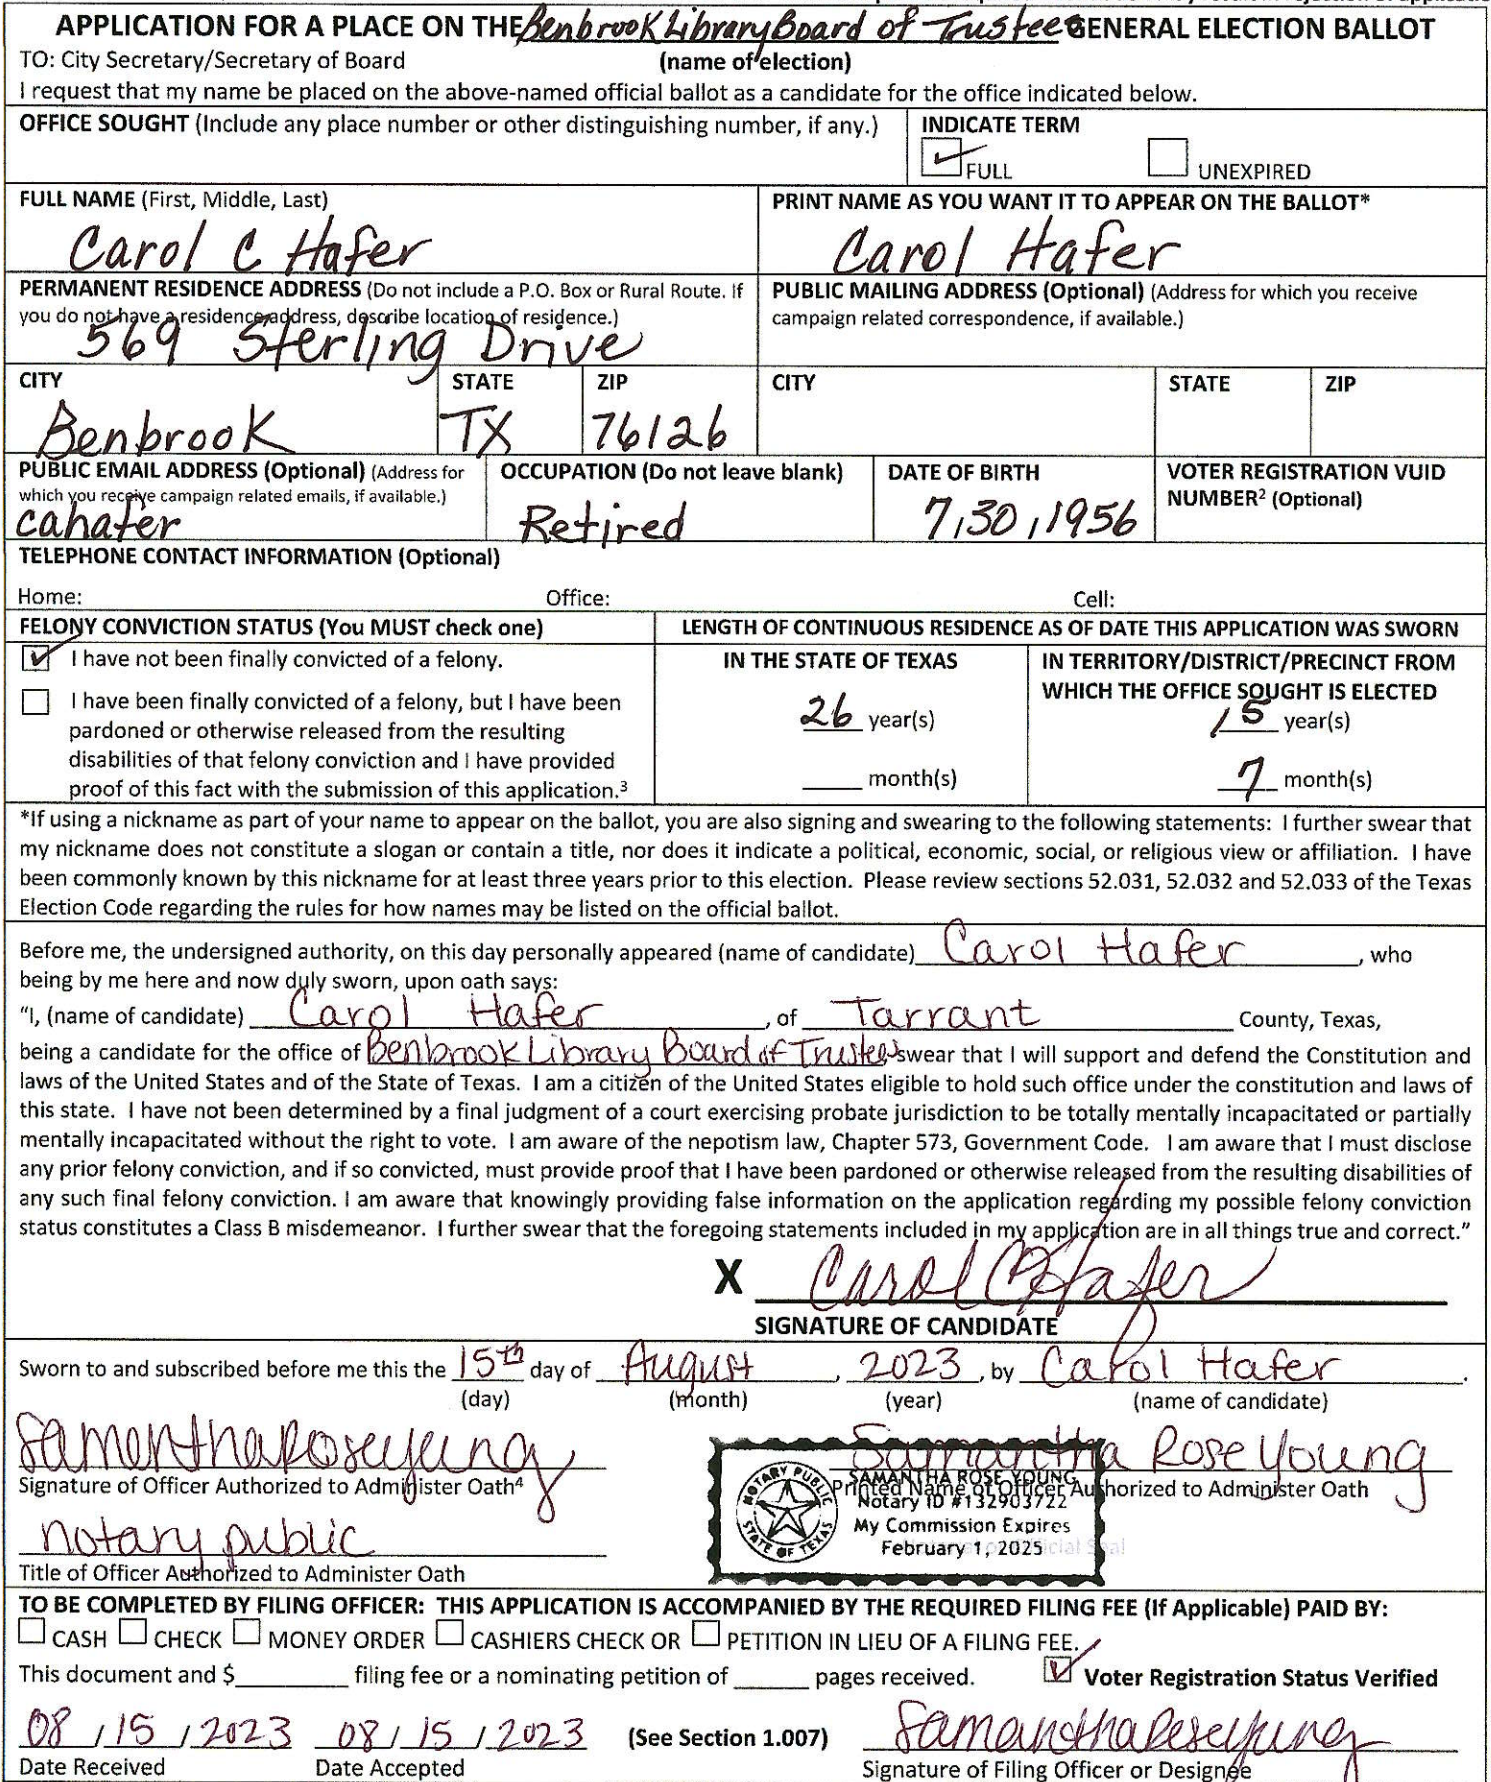 APPLICATION FOR A PLACE ON THE Benbrook Library Board of Trustees GENERAL ELECTION BALLOT
TO: City Secretary/Secretary of Board (name of election)
I request that my name be placed on the above-named official ballot as a candidate for the office indicated below.
OFFICE SOUGHT (Include any place number or other distinguishing number, if any.) INDICATE TERM
FULL UNEXPIRED
FULL NAME (First, Middle, Last) PRINT NAME AS YOU WANT IT TO APPEAR ON THE BALLOT*
Carol C Hafer Carol Hafer
PERMANENT RESIDENCE ADDRESS (Do not include a P.O. Box or Rural Route. If you do not have a residence address, describe location of residence.)
569 Sterling Drive
PUBLIC MAILING ADDRESS (Optional) (Address for which you receive campaign related correspondence, if available.)
CITY STATE ZIP CITY STATE ZIP
Benbrook TX 76126
PUBLIC EMAIL ADDRESS (Optional) (Address for which you receive campaign related emails, if available.)
cahafer
OCCUPATION (Do not leave blank)
Retired
DATE OF BIRTH
7,30,1956
VOTER REGISTRATION VUID NUMBER² (Optional)
TELEPHONE CONTACT INFORMATION (Optional)
Home: Office: Cell:
FELONY CONVICTION STATUS (You MUST check one)
I have not been finally convicted of a felony.
I have been finally convicted of a felony, but I have been
pardoned or otherwise released from the resulting
disabilities of that felony conviction and I have provided
proof of this fact with the submission of this application.³
LENGTH OF CONTINUOUS RESIDENCE AS OF DATE THIS APPLICATION WAS SWORN
IN THE STATE OF TEXAS
26 year(s)
month(s)
IN TERRITORY/DISTRICT/PRECINCT FROM
WHICH THE OFFICE SOUGHT IS ELECTED
15 year(s)
7 month(s)
*If using a nickname as part of your name to appear on the ballot, you are also signing and swearing to the following statements: I further swear that
my nickname does not constitute a slogan or contain a title, nor does it indicate a political, economic, social, or religious view or affiliation. I have
been commonly known by this nickname for at least three years prior to this election. Please review sections 52.031, 52.032 and 52.033 of the Texas
Election Code regarding the rules for how names may be listed on the official ballot.
Before me, the undersigned authority, on this day personally appeared (name of candidate) Carol Hafer, who
being by me here and now duly sworn, upon oath says:
"I, (name of candidate) Carol Hafer, of Tarrant County, Texas,
being a candidate for the office of Benbrook Library Board of Trustees swear that I will support and defend the Constitution and
laws of the United States and of the State of Texas. I am a citizen of the United States eligible to hold such office under the constitution and laws of
this state. I have not been determined by a final judgment of a court exercising probate jurisdiction to be totally mentally incapacitated or partially
mentally incapacitated without the right to vote. I am aware of the nepotism law, Chapter 573, Government Code. I am aware that I must disclose
any prior felony conviction, and if so convicted, must provide proof that I have been pardoned or otherwise released from the resulting disabilities of
any such final felony conviction. I am aware that knowingly providing false information on the application regarding my possible felony conviction
status constitutes a Class B misdemeanor. I further swear that the foregoing statements included in my application are in all things true and correct."
X Carol C Hafer
SIGNATURE OF CANDIDATE
Sworn to and subscribed before me this the 15th day of August, 2023, by Carol Hafer.
(day) (month) (year) (name of candidate)
Samantha Rose Young Samantha Rose Young
Signature of Officer Authorized to Administer Oath⁴ Printed Name of Officer Authorized to Administer Oath
notary public
Title of Officer Authorized to Administer Oath
NOTARY PUBLIC
STATE OF TEXAS
SAMANTHA ROSE YOUNG
Notary ID #132903722
My Commission Expires
February 1, 2025
TO BE COMPLETED BY FILING OFFICER: THIS APPLICATION IS ACCOMPANIED BY THE REQUIRED FILING FEE (If Applicable) PAID BY:
CASH CHECK MONEY ORDER CASHIERS CHECK OR PETITION IN LIEU OF A FILING FEE.
This document and $ filing fee or a nominating petition of pages received. Voter Registration Status Verified
08/15/2023 08/15/2023 (See Section 1.007) Samantha Rose Young
Date Received Date Accepted Signature of Filing Officer or Designee